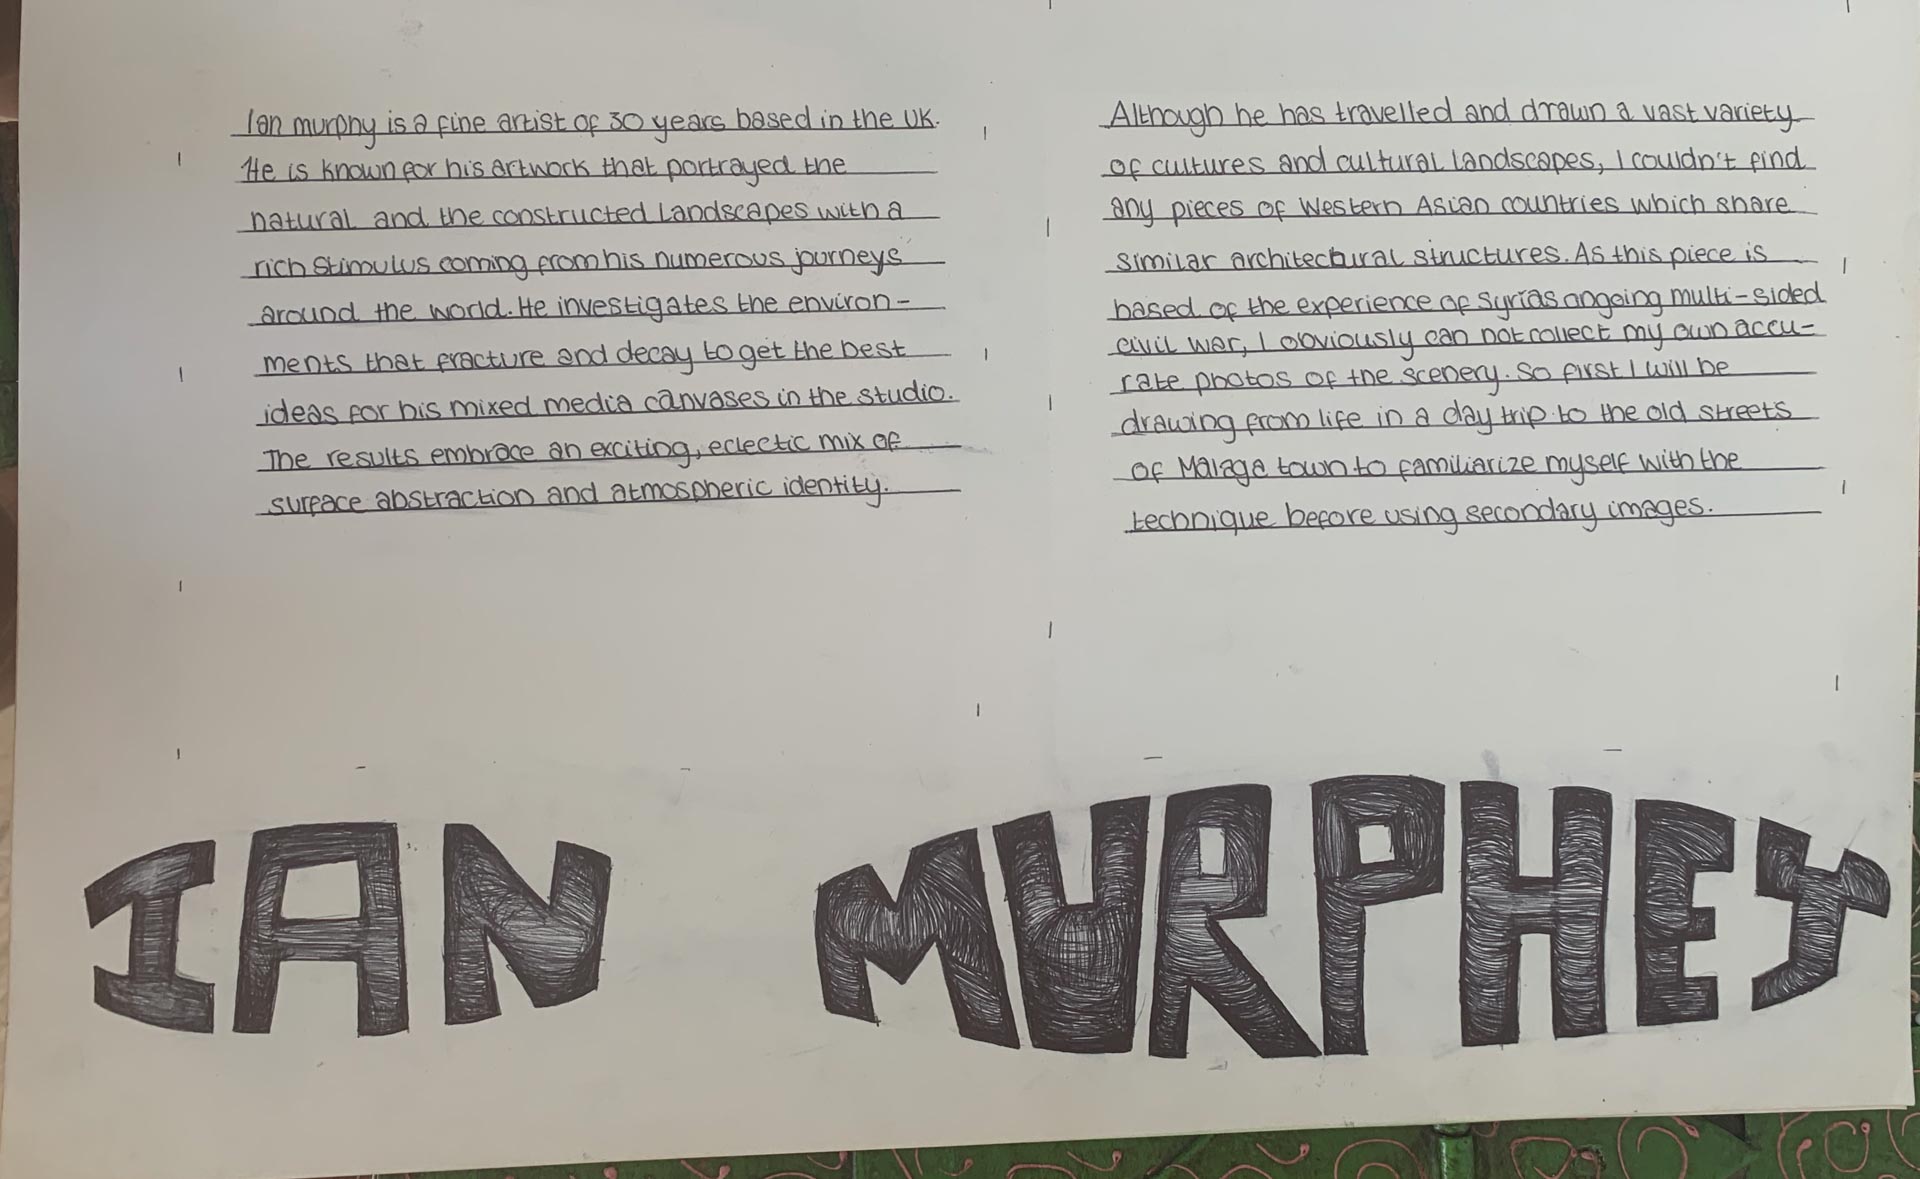 Ian murphy is a fine artist of 30 years based in the UK.
He is known for his artwork that portrayed the
natural and the constructed landscapes with a
rich stimulus coming from his numerous journeys
around the world. He investigates the environ-
ments that fracture and decay to get the best
ideas for his mixed media canvases in the studio.
The results embrace an exciting, eclectic mix of
surface abstraction and atmospheric identity.
Although he has travelled and drawn a vast variety
of cultures and cultural landscapes, I couldn't find
any pieces of Western Asian countries which share
similar architectural structures. As this piece is
based of the experience of Syrias ongoing multi-sided
civil war, I obviously can not collect my own accu-
rate photos of the scenery. So first I will be
drawing from life in a day trip to the old streets
of Malaga town to familiarize myself with the
technique before using secondary images.
IAN MURPHEY